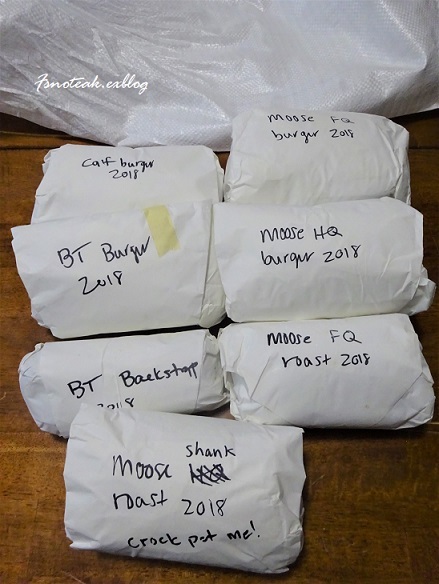 Fsnoteak.exblog
Moose FQ
burger 2018
Calf burger
2018
BT Burger
2018
Moose HQ
burger 2018
BT Backstrap
2018
Moose FQ
roast 2018
Moose shank
roast 2018
crock pot me!